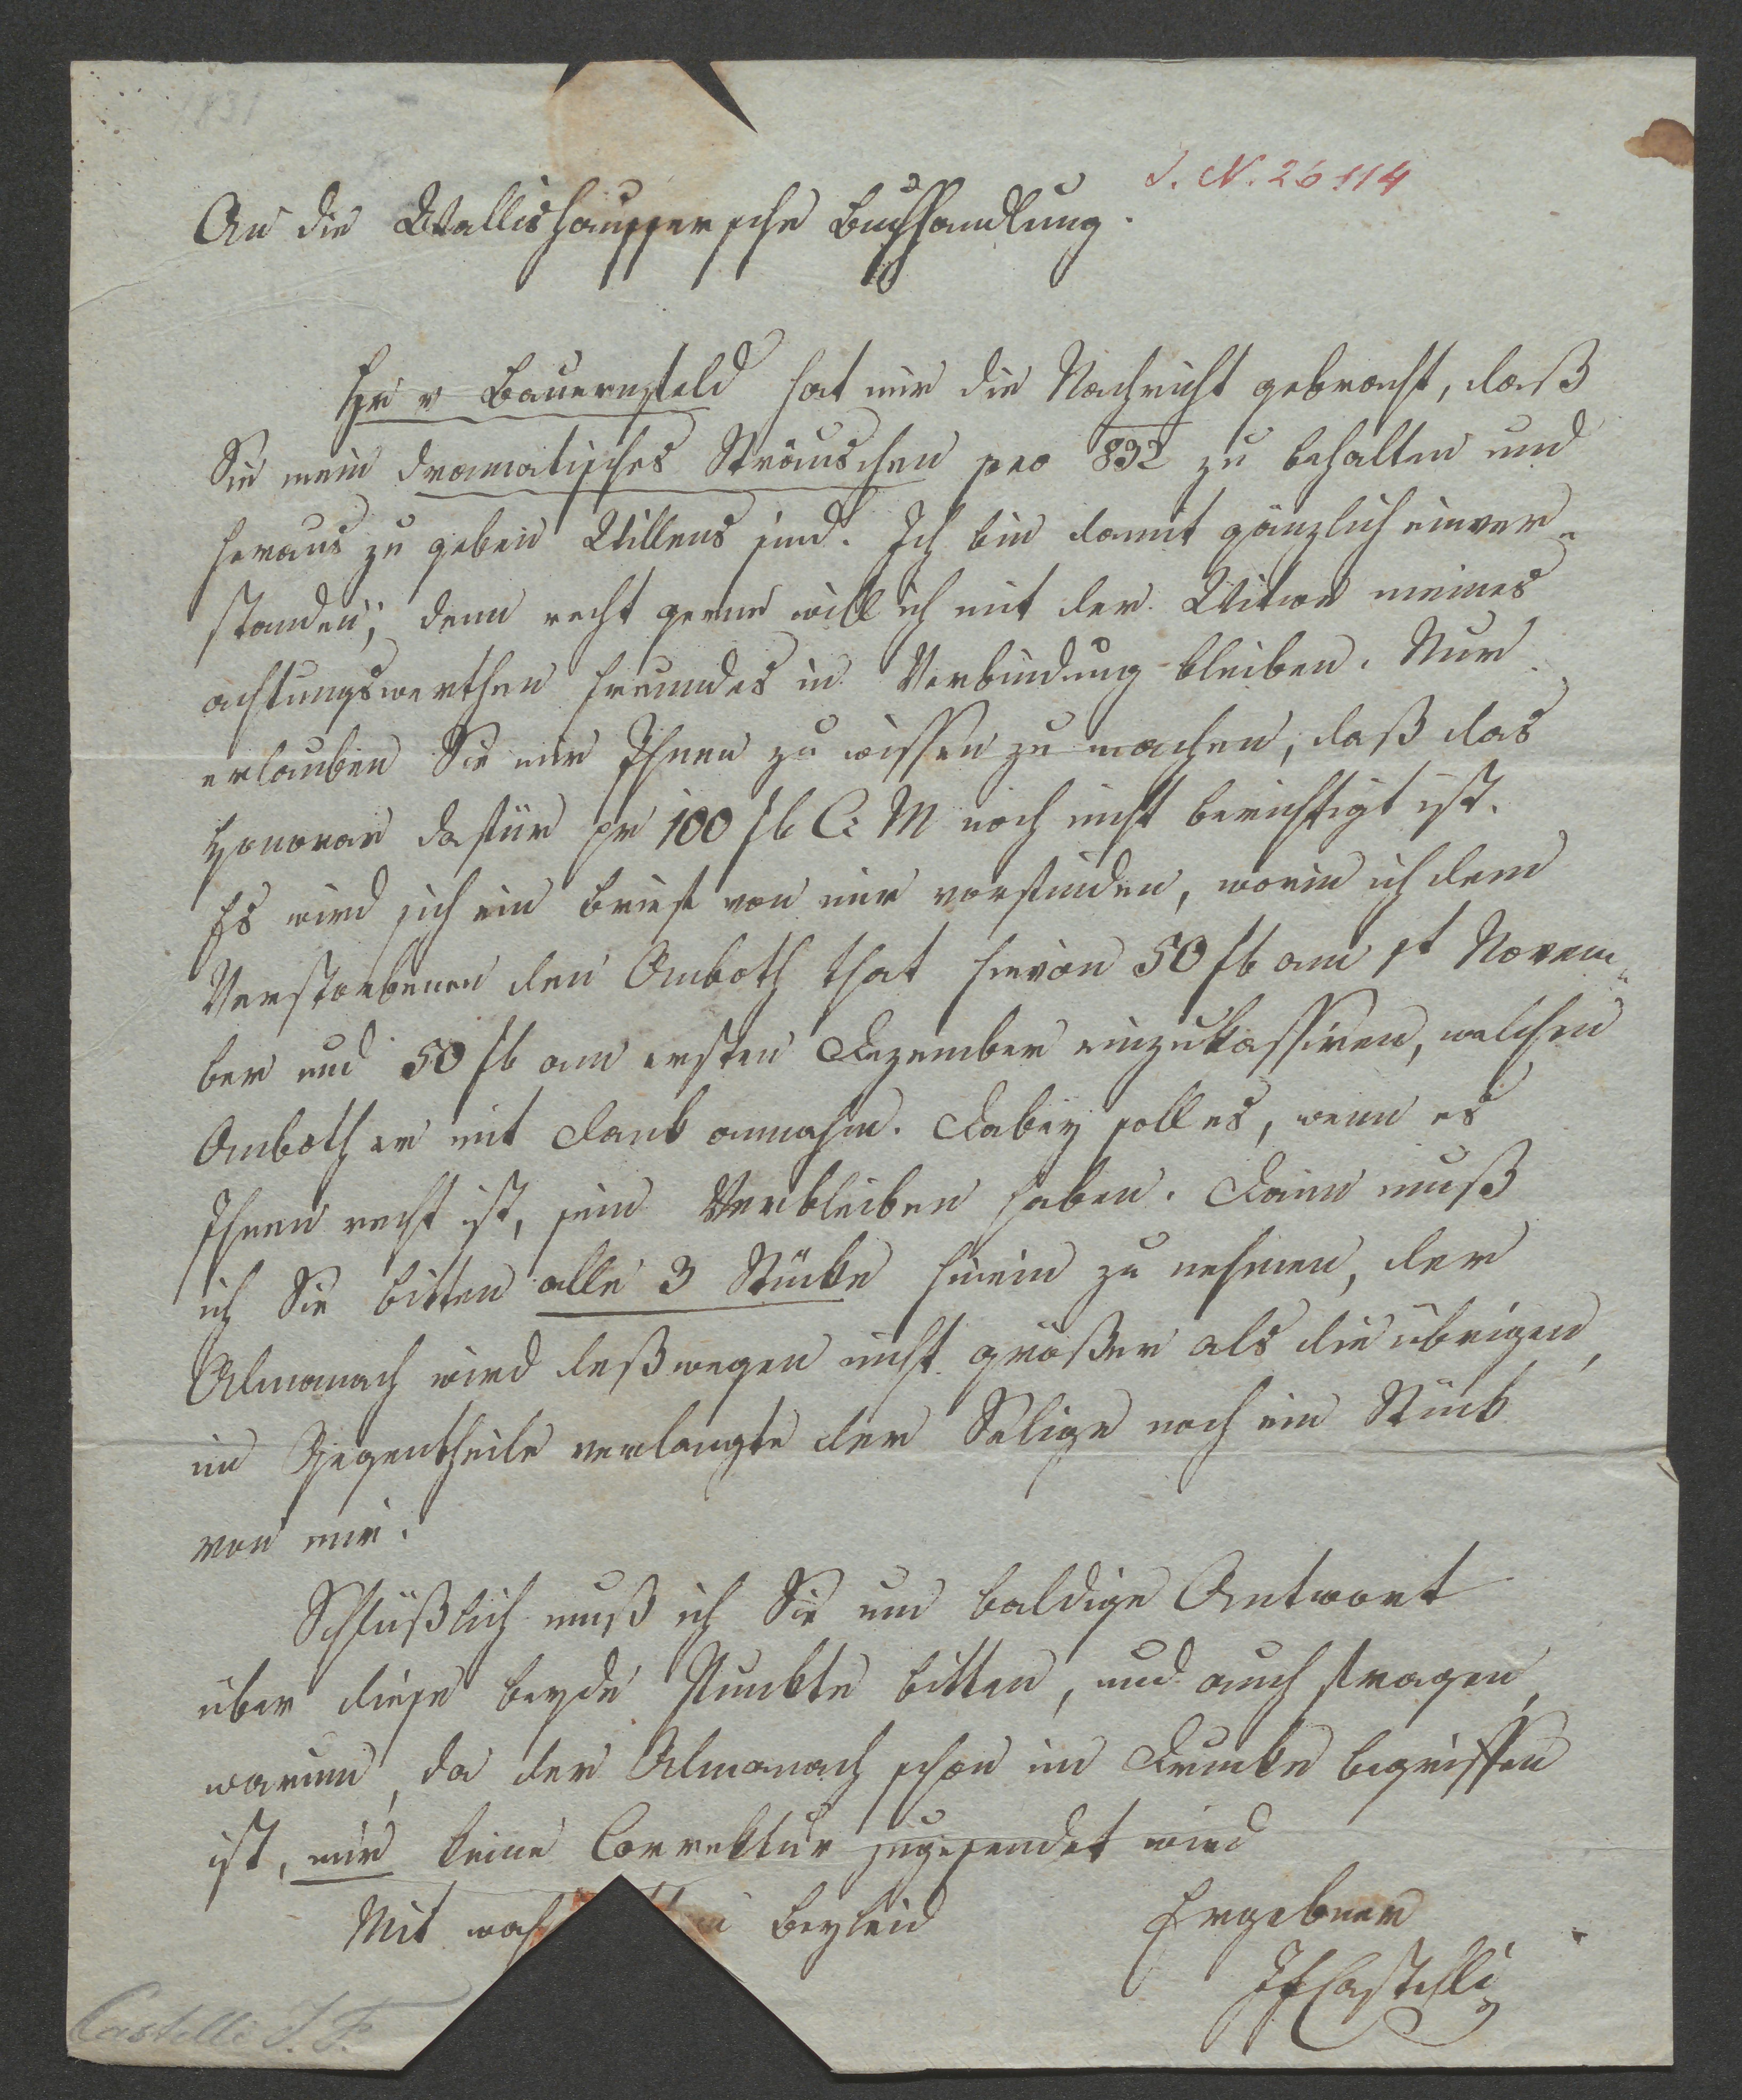 1831
I. N. 26114
An die Wallishaussersche Buchhandlung.
Hr v Bauernfeld hat mir die Nachricht gebracht, daß
Sie mein dramatisches Sträuschen pro 832 zu behalten und
heraus zu geben Willens sind. Ich bin damit gänzlich einver-
standen; denn recht gerne will ich mit der Witwe meines
achtungswerthen Freundes in Verbindung bleiben. Nur
erlauben Sie mir Ihnen zu wissen zu machen, daß das
Honorar dafür pr 100 fl C: M noch nicht berichtigt ist.
Es wird sich ein Brief von mir vorfinden, worin ich dem
Verstorbenen den Anboth that hievon 50 fl am 1t Novem-
ber und 50 fl am ersten Dezember einzukassiren, welchen
Anboth er mit Dank annahm. Dabey soll es, wenn es
Ihnen recht ist, sein Verbleiben haben. Dann muß
ich Sie bitten alle 3 Stücke hinein zu nehmen, der
Almanach wird deßwegen nicht größer als die übrigen,
im Gegentheile verlangte der Selige noch ein Stück
von mir.
Schlüßlich muß ich Sie um baldige Antwort
über diese beyde Punkte bitten, und auch fragen,
warum, da der Almanach schon im Drucke begriffen
ist, mir keine Correktur zugesendet wird
Mit wah Beyleid
Ergebner
JFCastelli
Castelli I. F.